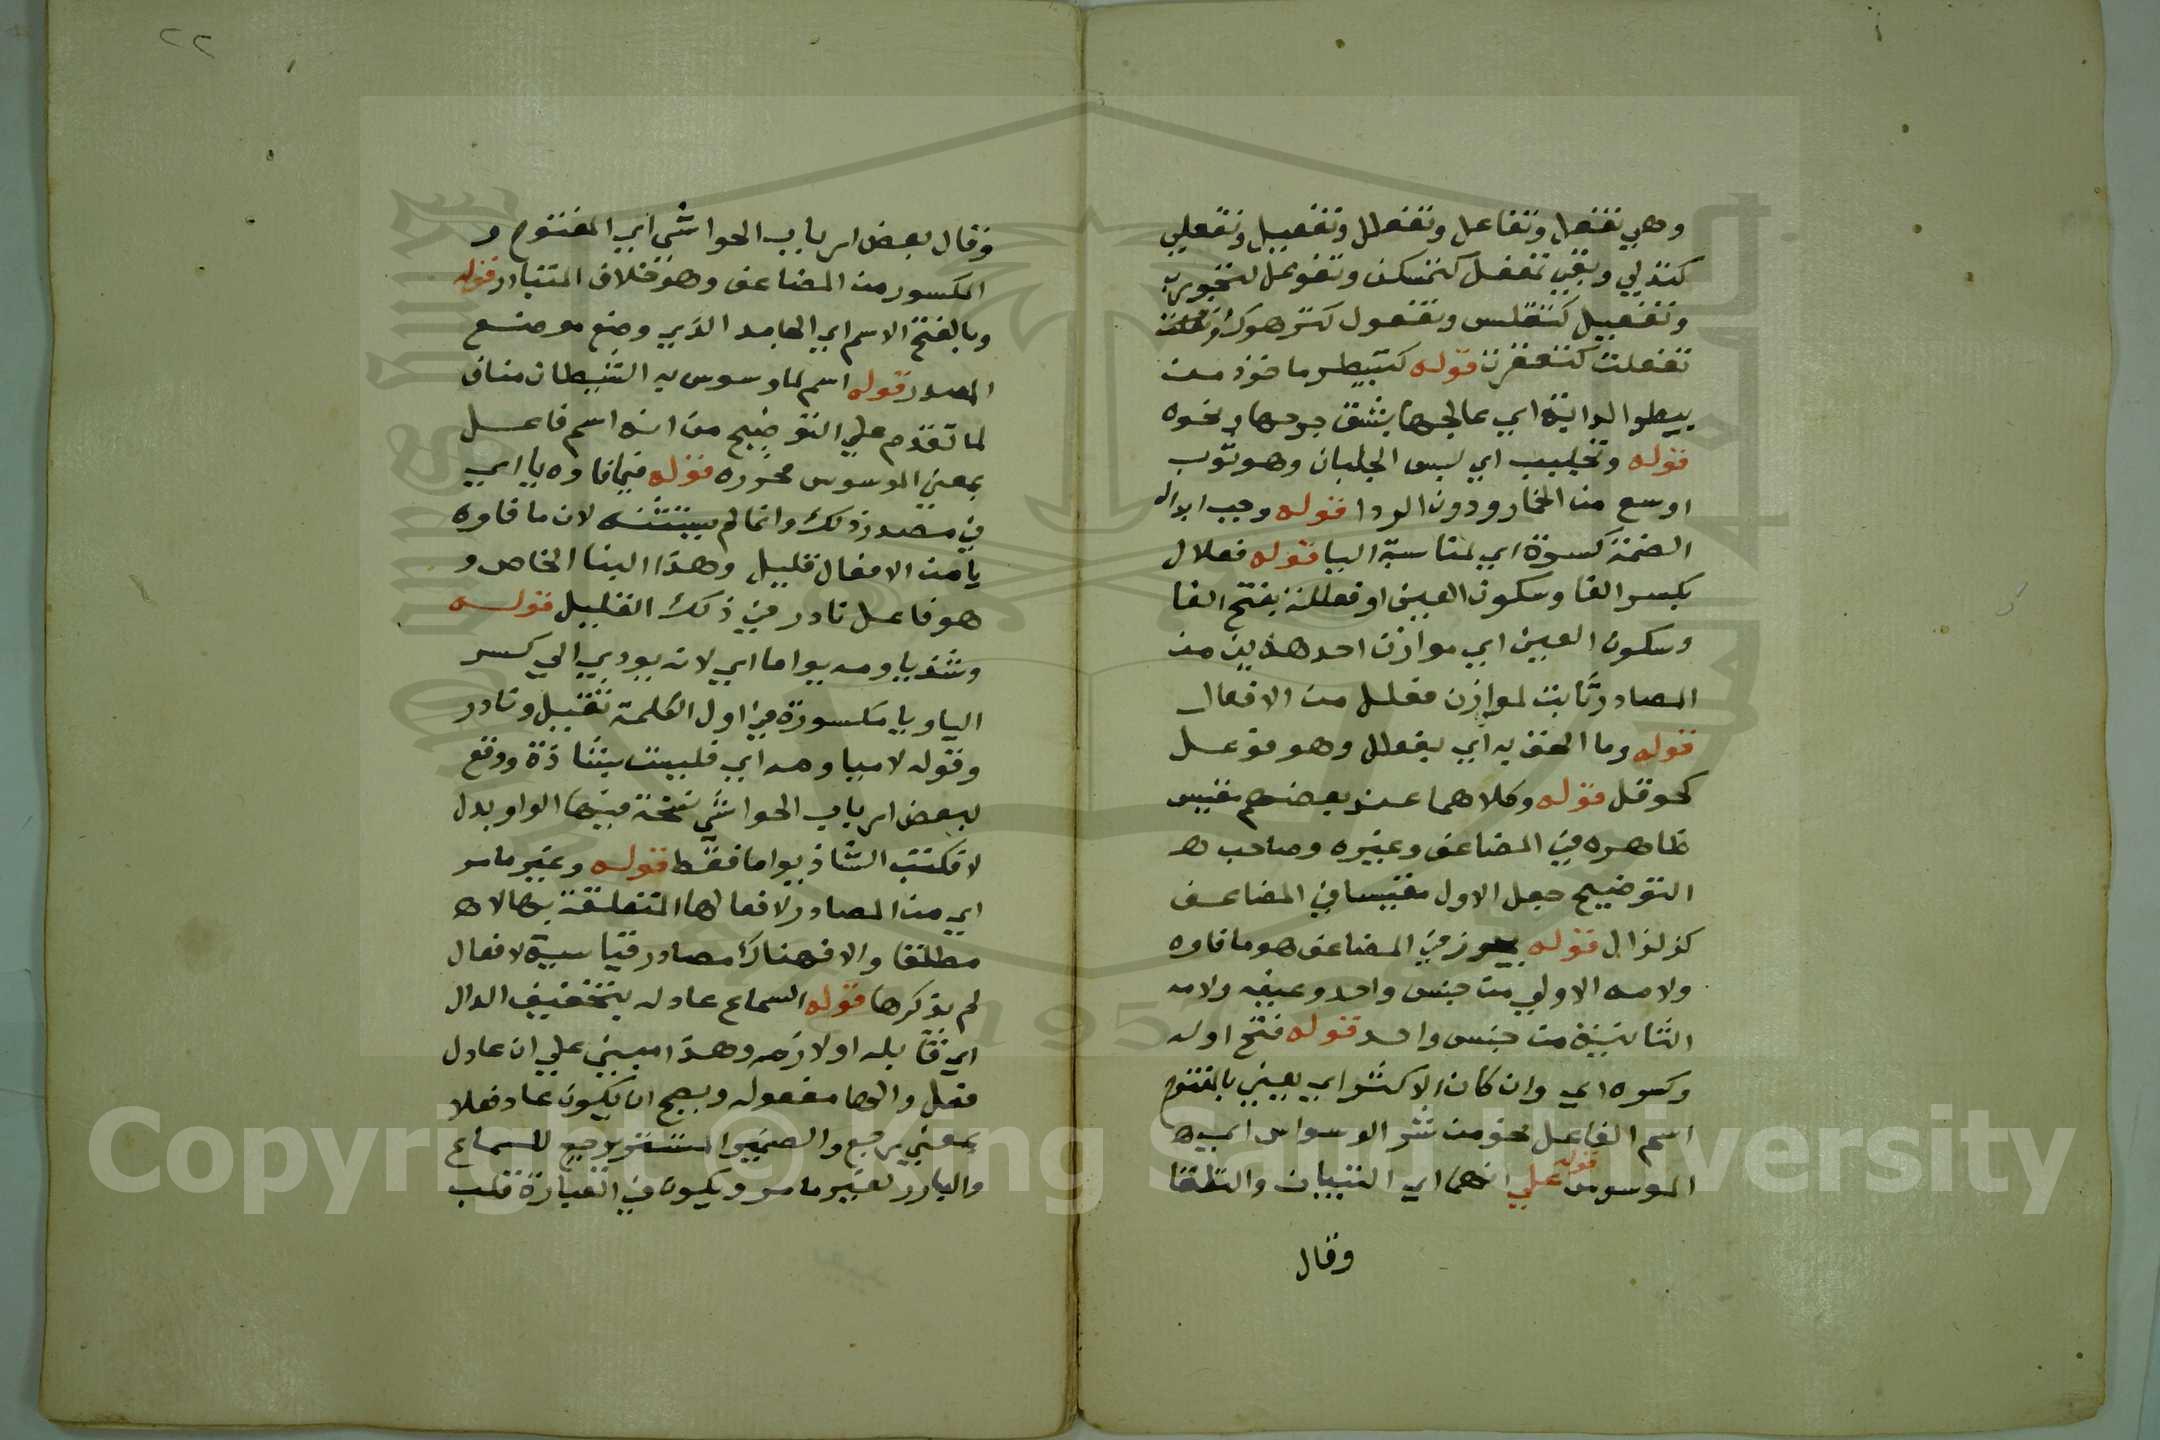 وهي تفعل وتفاعل وتفعلل وتفعيل وتفعلي
كتدلي وبقي تمفعل كتمسكن وتفوعل كتجورب
وتفعيل كتقلس وتفعول كترهوك
تفعلت كتعفرت قوله كتبيطر ماخوذ من
بيطر الدابة اي عالجها بشق جرحها ونحوه
قوله وتجلبب اي لبس الجلباب وهو ثوب
اوسع من الخمار ودون الردا قوله وجب ابدال
الضمة كسرة اي لمناسبة اليا قوله فعلال
بكسر الفا وسكون العين او فعللة بفتح الفا
وسكون العين اي موازن احد هذين من
المصادر ثابت لموازن فعلل من الافعال
قوله وما الحق به اي بفعلل وهو فوعل
كحوقل قوله وكلاهما عند بعضهم مقيس
ظاهره في المضاعف وغيره وصاحب
التوضيح جعل الاول مقيسا في المضاعف
كزلزال قوله يجوز في المضاعف هو ما فاوه
ولامه الاولي من جنس واحد وعينه ولامه
الثانية من جنس واحد قوله فتح اوله
وكسره اي وان كان الاكثر اي يعني بالمفتوح
اسم الفاعل نحو من شر الوسواس اي
الموسوس قوله علي انهما اي التبيان والتلقا
وقال
٢٢
وقال بعض ارباب الحواشي اي المفتوح و
المكسور من المضاعف وهو خلاف المتبادر قوله
وبالفتح الاسم اي الجامد الذي وضع موضع
المصدر قوله اسم لما وسوس به الشيطان مناف
لما تقدم علي التوضيح من انه اسم فاعل
بمعني الموسوس محرره قوله فيما فاوه يا اي
في مصدر ذلك وانما لم يستثنه لان ما فاوه
يا من الافعال قليل وهذا البنا الخاص و
هو فاعل نادر في ذلك القليل قوله
وشذ ياومه يواما اي لانه يودي الي كسر
الياو يا مكسورة في اول الكلمة ثقيل ونادر
وقوله لا مياومه اي فليست بشاذة ووقع
لبعض ارباب الحواشي نسخة فيها الواو بدل
لا فكتب الشاذ يواما فقط قوله وغير ما مر
اي من المصادر لافعالها المتعلقة بها لا
مطلقا والا فهناك مصادر قياسية لافعال
لم يذكرها قوله السماع عادله بتخفيف الدال
اي قابله او لازمه وهذا مبني علي ان عادل
فعل والها مفعوله ويصح ان يكون عاد فعلا
بمعني يرجع والضمير المستتر يرجع للسماع
والبارز لغير ما مر ويكون في العبارة قلب